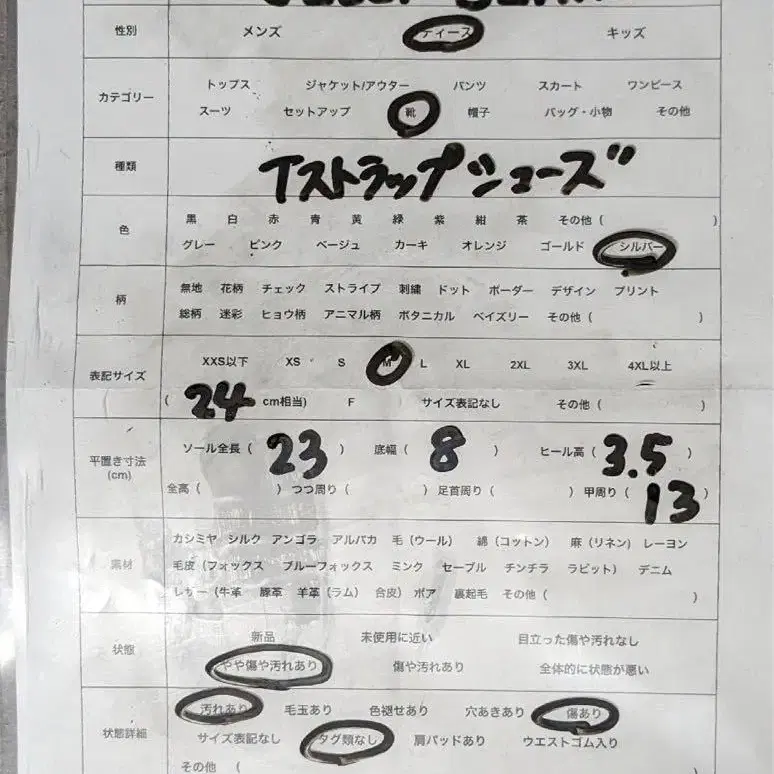 性別 メンズ ディース キッズ
カテゴリー トップス ジャケット/アウター パンツ スカート ワンピース
スーツ セットアップ 靴 帽子 バッグ・小物 その他
種類 Tストラップシューズ
色 黒 白 赤 青 黄 緑 紫 紺 茶 その他 ( )
グレー ピンク ベージュ カーキ オレンジ ゴールド シルバー
柄 無地 花柄 チェック ストライプ 刺繍 ドット ボーダー デザイン プリント
総柄 迷彩 ヒョウ柄 アニマル柄 ボタニカル ペイズリー その他 ( )
表記サイズ XXS以下 XS S M L XL 2XL 3XL 4XL以上
( 24 cm相当) F サイズ表記なし その他 ( )
平置き寸法 (cm) ソール全長 ( 23 ) 底幅 ( 8 ) ヒール高 ( 3.5 )
全高 ( ) つつ周り ( ) 足首周り ( ) 甲周り ( 13 )
素材 カシミヤ シルク アンゴラ アルパカ 毛 (ウール) 綿 (コットン) 麻 (リネン) レーヨン
毛皮 (フォックス ブルーフォックス ミンク セーブル チンチラ ラビット) デニム
レザー (牛革 豚革 羊革 (ラム) 合皮) ボア 裏起毛 その他 ( )
状態 新品 未使用に近い 目立った傷や汚れなし
やや傷や汚れあり 傷や汚れあり 全体的に状態が悪い
状態詳細 汚れあり 毛玉あり 色褪せあり 穴あきあり 傷あり
サイズ表記なし タグ類なし 肩パッドあり ウエストゴム入り
その他 (